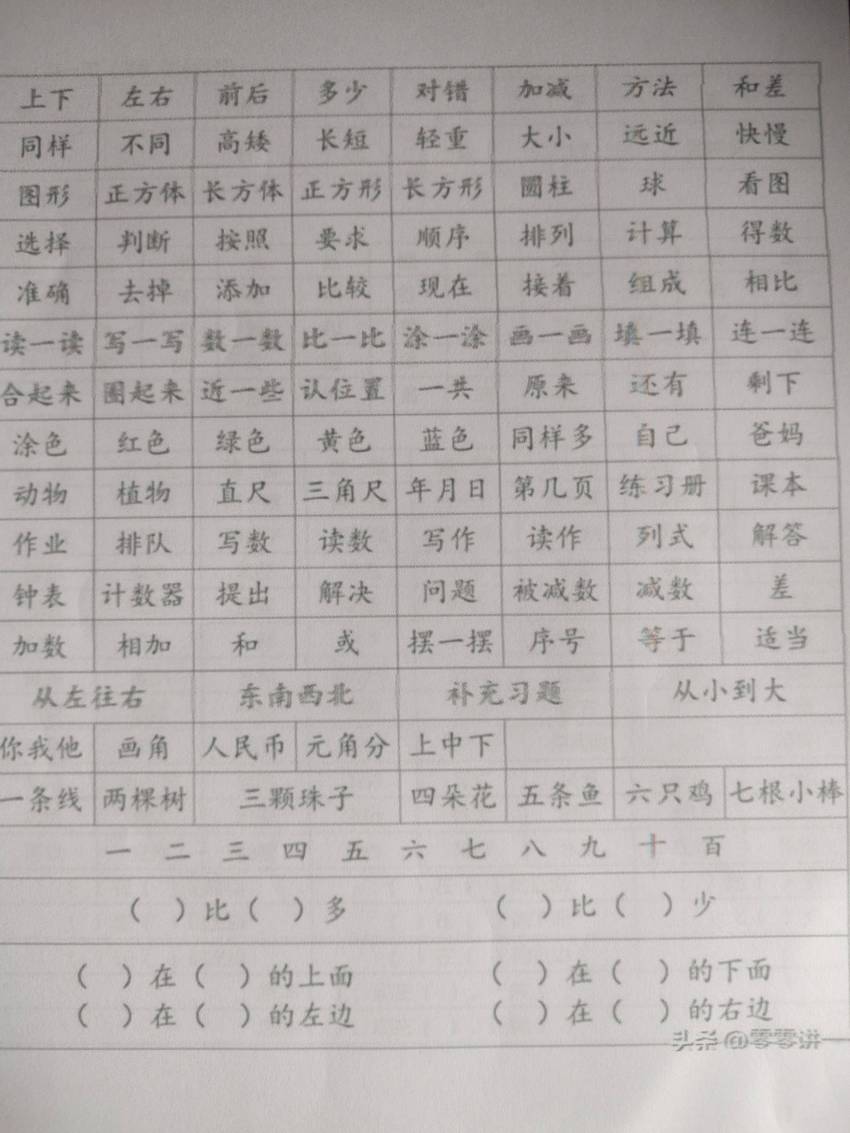 上下 左右 前后 多少 对错 加减 方法 和差
同样 不同 高矮 长短 轻重 大小 远近 快慢
图形 正方体 长方体 正方形 长方形 圆柱 球 看图
选择 判断 按照 要求 顺序 排列 计算 得数
准确 去掉 添加 比较 现在 接着 组成 相比
读一读 写一写 数一数 比一比 涂一涂 画一画 填一填 连一连
合起来 圈起来 近一些 认位置 一共 原来 还有 剩下
涂色 红色 绿色 黄色 蓝色 同样多 自己 爸妈
动物 植物 直尺 三角尺 年月日 第几页 练习册 课本
作业 排队 写数 读数 写作 读作 列式 解答
钟表 计数器 提出 解决 问题 被减数 减数 差
加数 相加 和 或 摆一摆 序号 等于 适当
从左往右 东南西北 补充习题 从小到大
你我他 画角 人民币 元角分 上中下
一条线 两棵树 三颗珠子 四朵花 五条鱼 六只鸡 七根小棒
一 二 三 四 五 六 七 八 九 十 百
( )比( )多 ( )比( )少
( )在( )的上面 ( )在( )的下面
( )在( )的左边 ( )在( )的右边
头条@零零讲